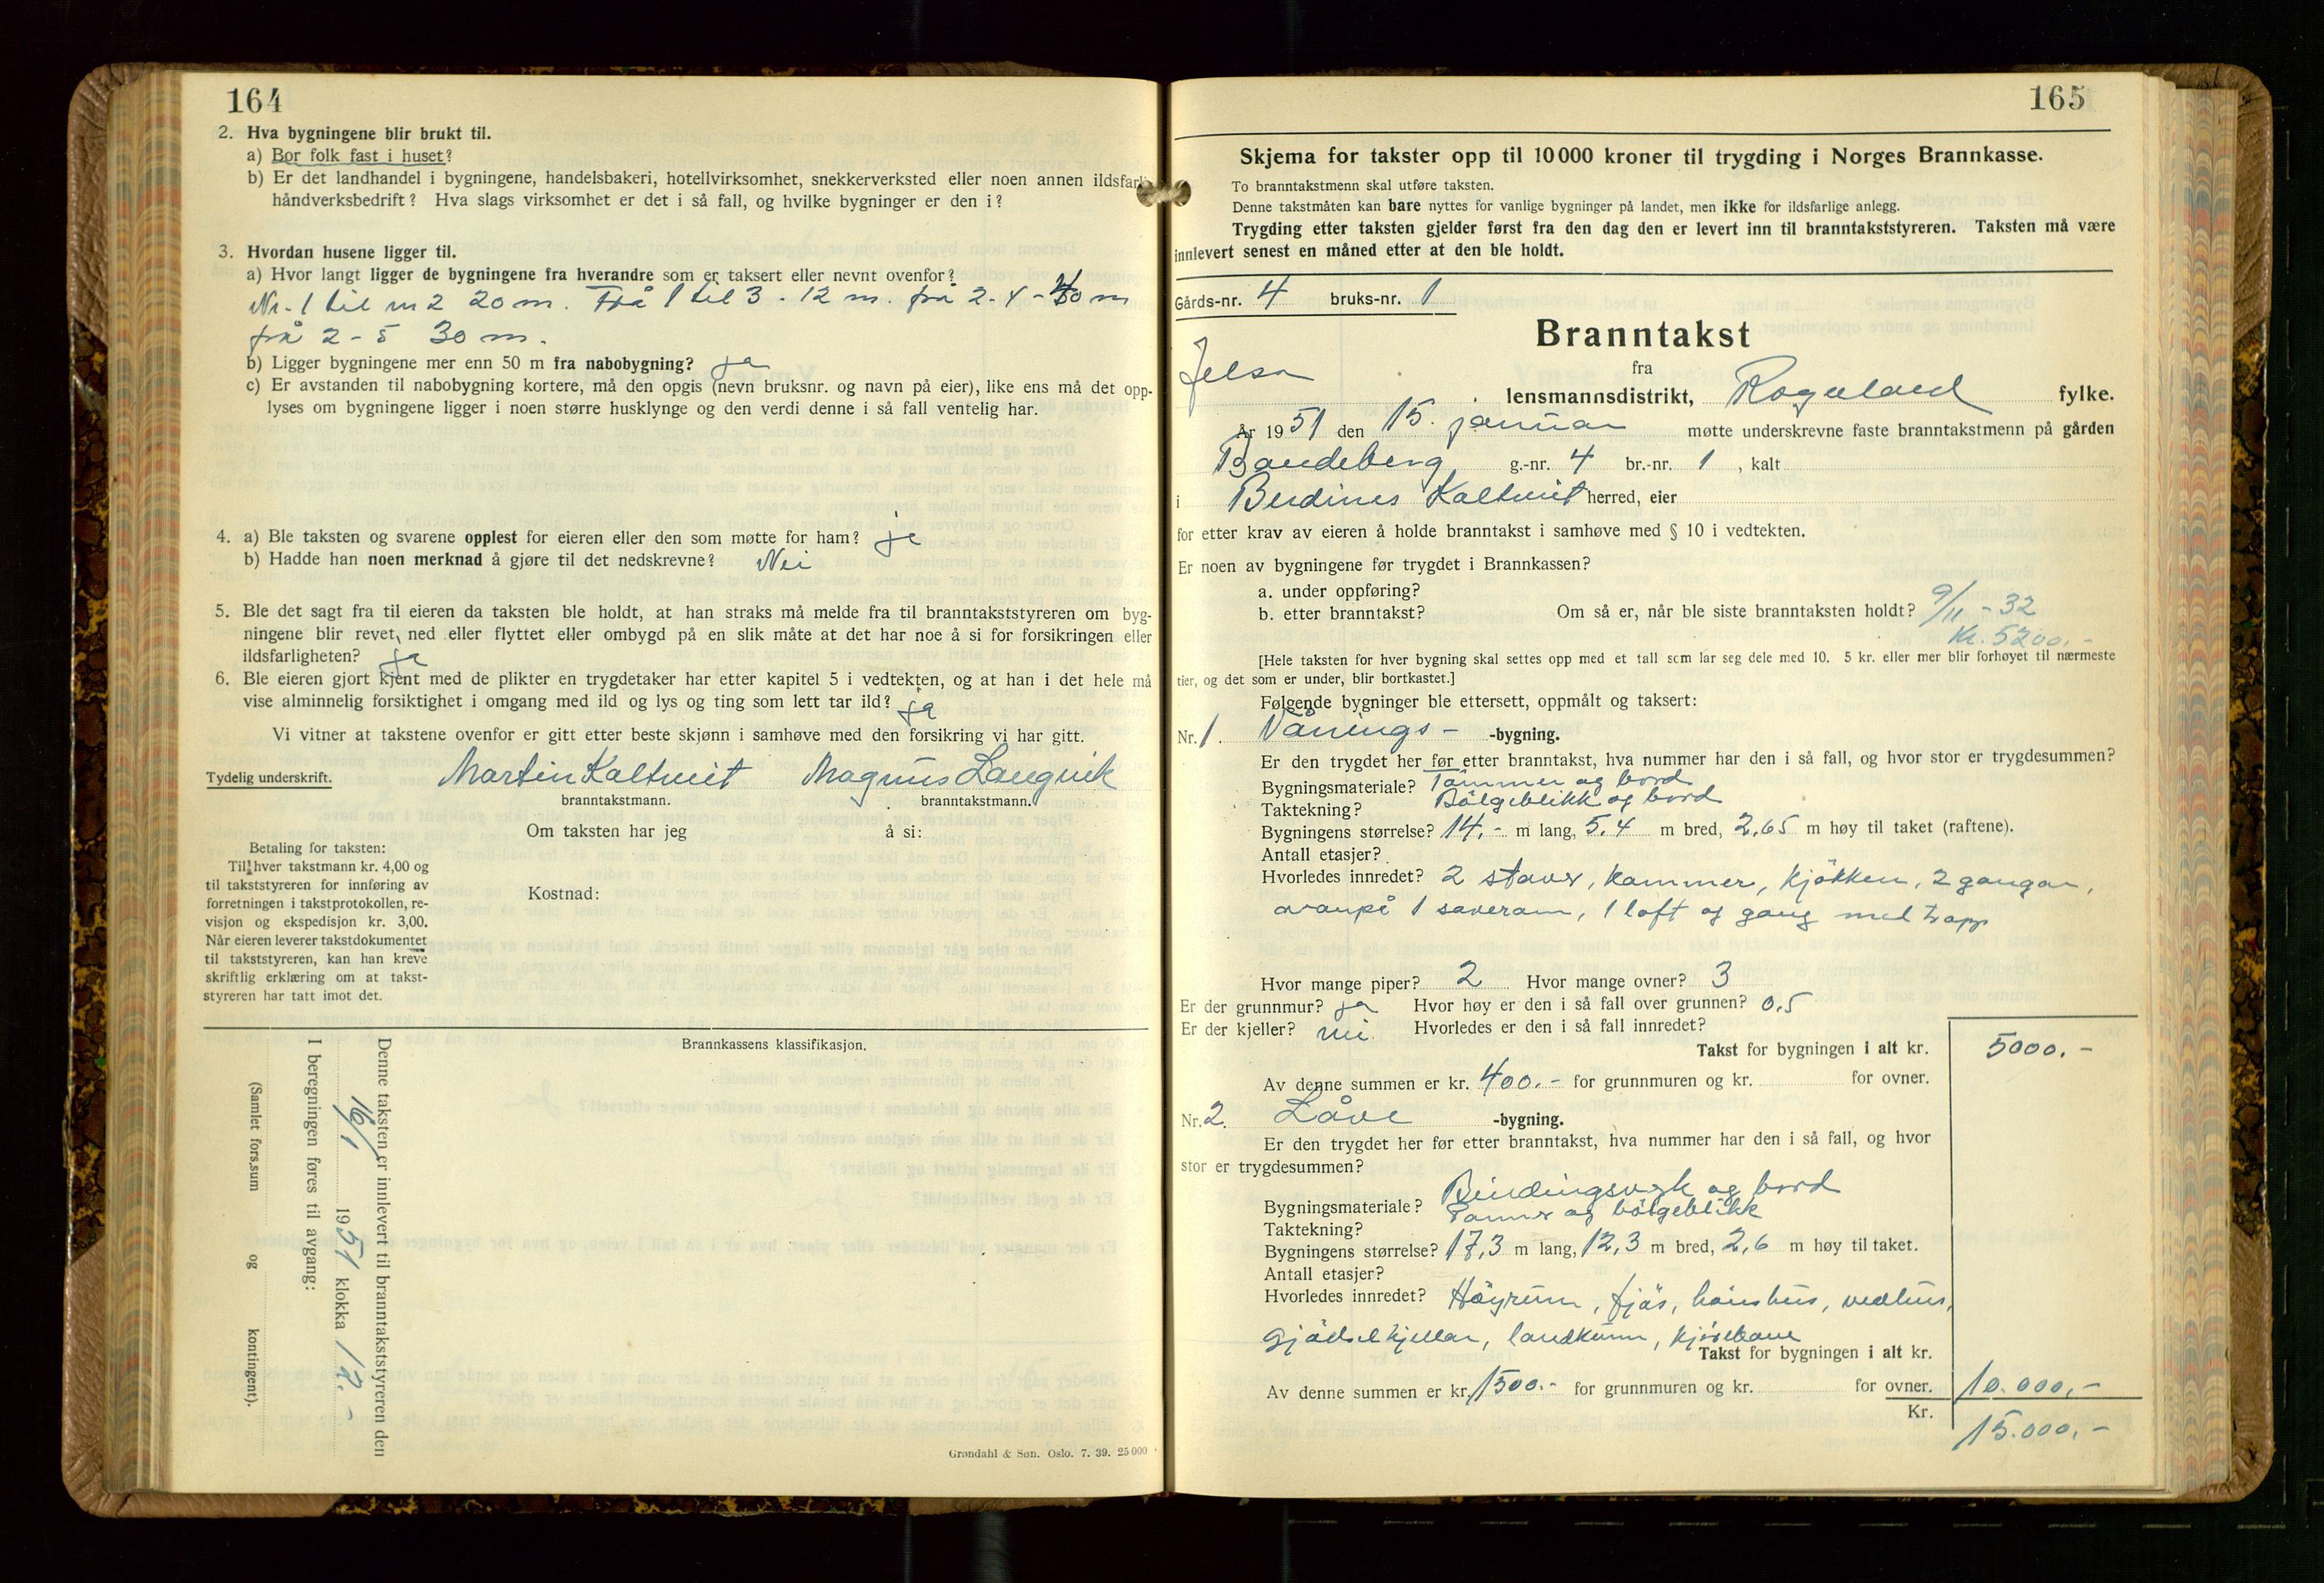 164
2. Hva bygningene blir brukt til.
a) Bor folk fast i huset?
b) Er det landhandel i bygningene, handelsbakeri, hotellvirksomhet, snekkerverksted eller noen annen ildsfarlig
håndverksbedrift? Hva slags virksomhet er det i så fall, og hvilke bygninger er den i?
3. Hvordan husene ligger til.
a) Hvor langt ligger de bygningene fra hverandre som er taksert eller nevnt ovenfor?
Nr. 1 til nr 2 20 m. Frå 1 til 3 - 12 m. frå 2-4 - 40 m
frå 2-5 30 m.
b) Ligger bygningene mer enn 50 m fra nabobygning? ja
c) Er avstanden til nabobygning kortere, må den opgis (nevn bruksnr. og navn på eier), like ens må det opp-
lyses om bygningene ligger i noen større husklynge og den verdi denne i så fall ventelig har.
4. a) Ble taksten og svarene opplest for eieren eller den som møtte for ham? ja
b) Hadde han noen merknad å gjøre til det nedskrevne? Nei
5. Ble det sagt fra til eieren da taksten ble holdt, at han straks må melde fra til branntakststyreren om byg-
ningene blir revet ned eller flyttet eller ombygd på en slik måte at det har noe å si for forsikringen eller
ildsfarligheten? ja
6. Ble eieren gjort kjent med de plikter en trygdetaker har etter kapitel 5 i vedtekten, og at han i det hele må
vise alminnelig forsiktighet i omgang med ild og lys og ting som lett tar ild? ja
Vi vitner at takstene ovenfor er gitt etter beste skjønn i samhøve med den forsikring vi har gitt.
Tydelig underskrift. Martin Kaltveit Magnus Langvik
branntakstmann. branntakstmann.
Om taksten har jeg å si:
Betaling for taksten:
Til hver takstmann kr. 4,00 og
til takststyreren for innføring av
forretningen i takstprotokollen, re-
visjon og ekspedisjon kr. 3,00.
Når eieren leverer takstdokumentet
til takststyreren, kan han kreve
skriftlig erklæring om at takst-
styreren har tatt imot det.
Kostnad:
Brannkassens klassifikasjon.
Denne taksten er innlevert til branntakststyreren den
16/1 1951 klokka 12.-
I beregningen føres til avgang:
(Samlet fors.sum og kontingent).
Grøndahl & Søn. Oslo. 7. 39. 25 000
165
Skjema for takster opp til 10 000 kroner til trygding i Norges Brannkasse.
To branntakstmenn skal utføre taksten.
Denne takstmåten kan bare nyttes for vanlige bygninger på landet, men ikke for ildsfarlige anlegg.
Trygding etter taksten gjelder først fra den dag den er levert inn til branntakststyreren. Taksten må være
innlevert senest en måned etter at den ble holdt.
Gårds-nr. 4 bruks-nr. 1
Branntakst
fra
Jelsa lensmannsdistrikt, Rogaland fylke.
År 1951 den 15. januar møtte underskrevne faste branntakstmenn på gården
Bandeberg g.-nr. 4 br.-nr. 1, kalt
i Berdines Kaltveit herred, eier
for etter krav av eieren å holde branntakst i samhøve med § 10 i vedtekten.
Er noen av bygningene før trygdet i Brannkassen?
a. under oppføring?
b. etter branntakst? Om så er, når ble siste branntaksten holdt? 9/11 - 32
Kr. 5200.-
[Hele taksten for hver bygning skal settes opp med et tall som lar seg dele med 10. 5 kr. eller mer blir forhøyet til nærmeste
tier, og det som er under, blir bortkastet.]
Følgende bygninger ble ettersett, oppmålt og taksert:
Nr. 1. Vånings- -bygning.
Er den trygdet her før etter branntakst, hva nummer har den i så fall, og hvor stor er trygdesummen?
Bygningsmateriale? Tømmer og bord
Taktekning? Bølgeblikk og bord
Bygningens størrelse? 14,- m lang, 5,4 m bred, 2,65 m høy til taket (raftene).
Antall etasjer?
Hvorledes innredet? 2 stover, kammer, kjøkken, 2 gangar,
ovanpå 1 soverom, 1 loft og gang med trapp
Hvor mange piper? 2 Hvor mange ovner? 3
Er der grunnmur? ja Hvor høy er den i så fall over grunnen? 0,5
Er der kjeller? nei. Hvorledes er den i så fall innredet?
Takst for bygningen i alt kr. 5000.-
Av denne summen er kr. 400.- for grunnmuren og kr. for ovner.
Nr. 2. Låve -bygning.
Er den trygdet her før etter branntakst, hva nummer har den i så fall, og hvor
stor er trygdesummen?
Bygningsmateriale? Bindingsverk og bord
Taktekning? Panner og bølgeblikk
Bygningens størrelse? 17,3 m lang, 12,3 m bred, 2,6 m høy til taket.
Antall etasjer?
Hvorledes innredet? Høyrum, fjøs, hønshus, vedhus,
gjødselkjellar, landkum, kjørebane
Takst for bygningen i alt kr.
Av denne summen er kr. 1500.- for grunnmuren og kr. for ovner. 10.000,-
Kr. 15.000,-